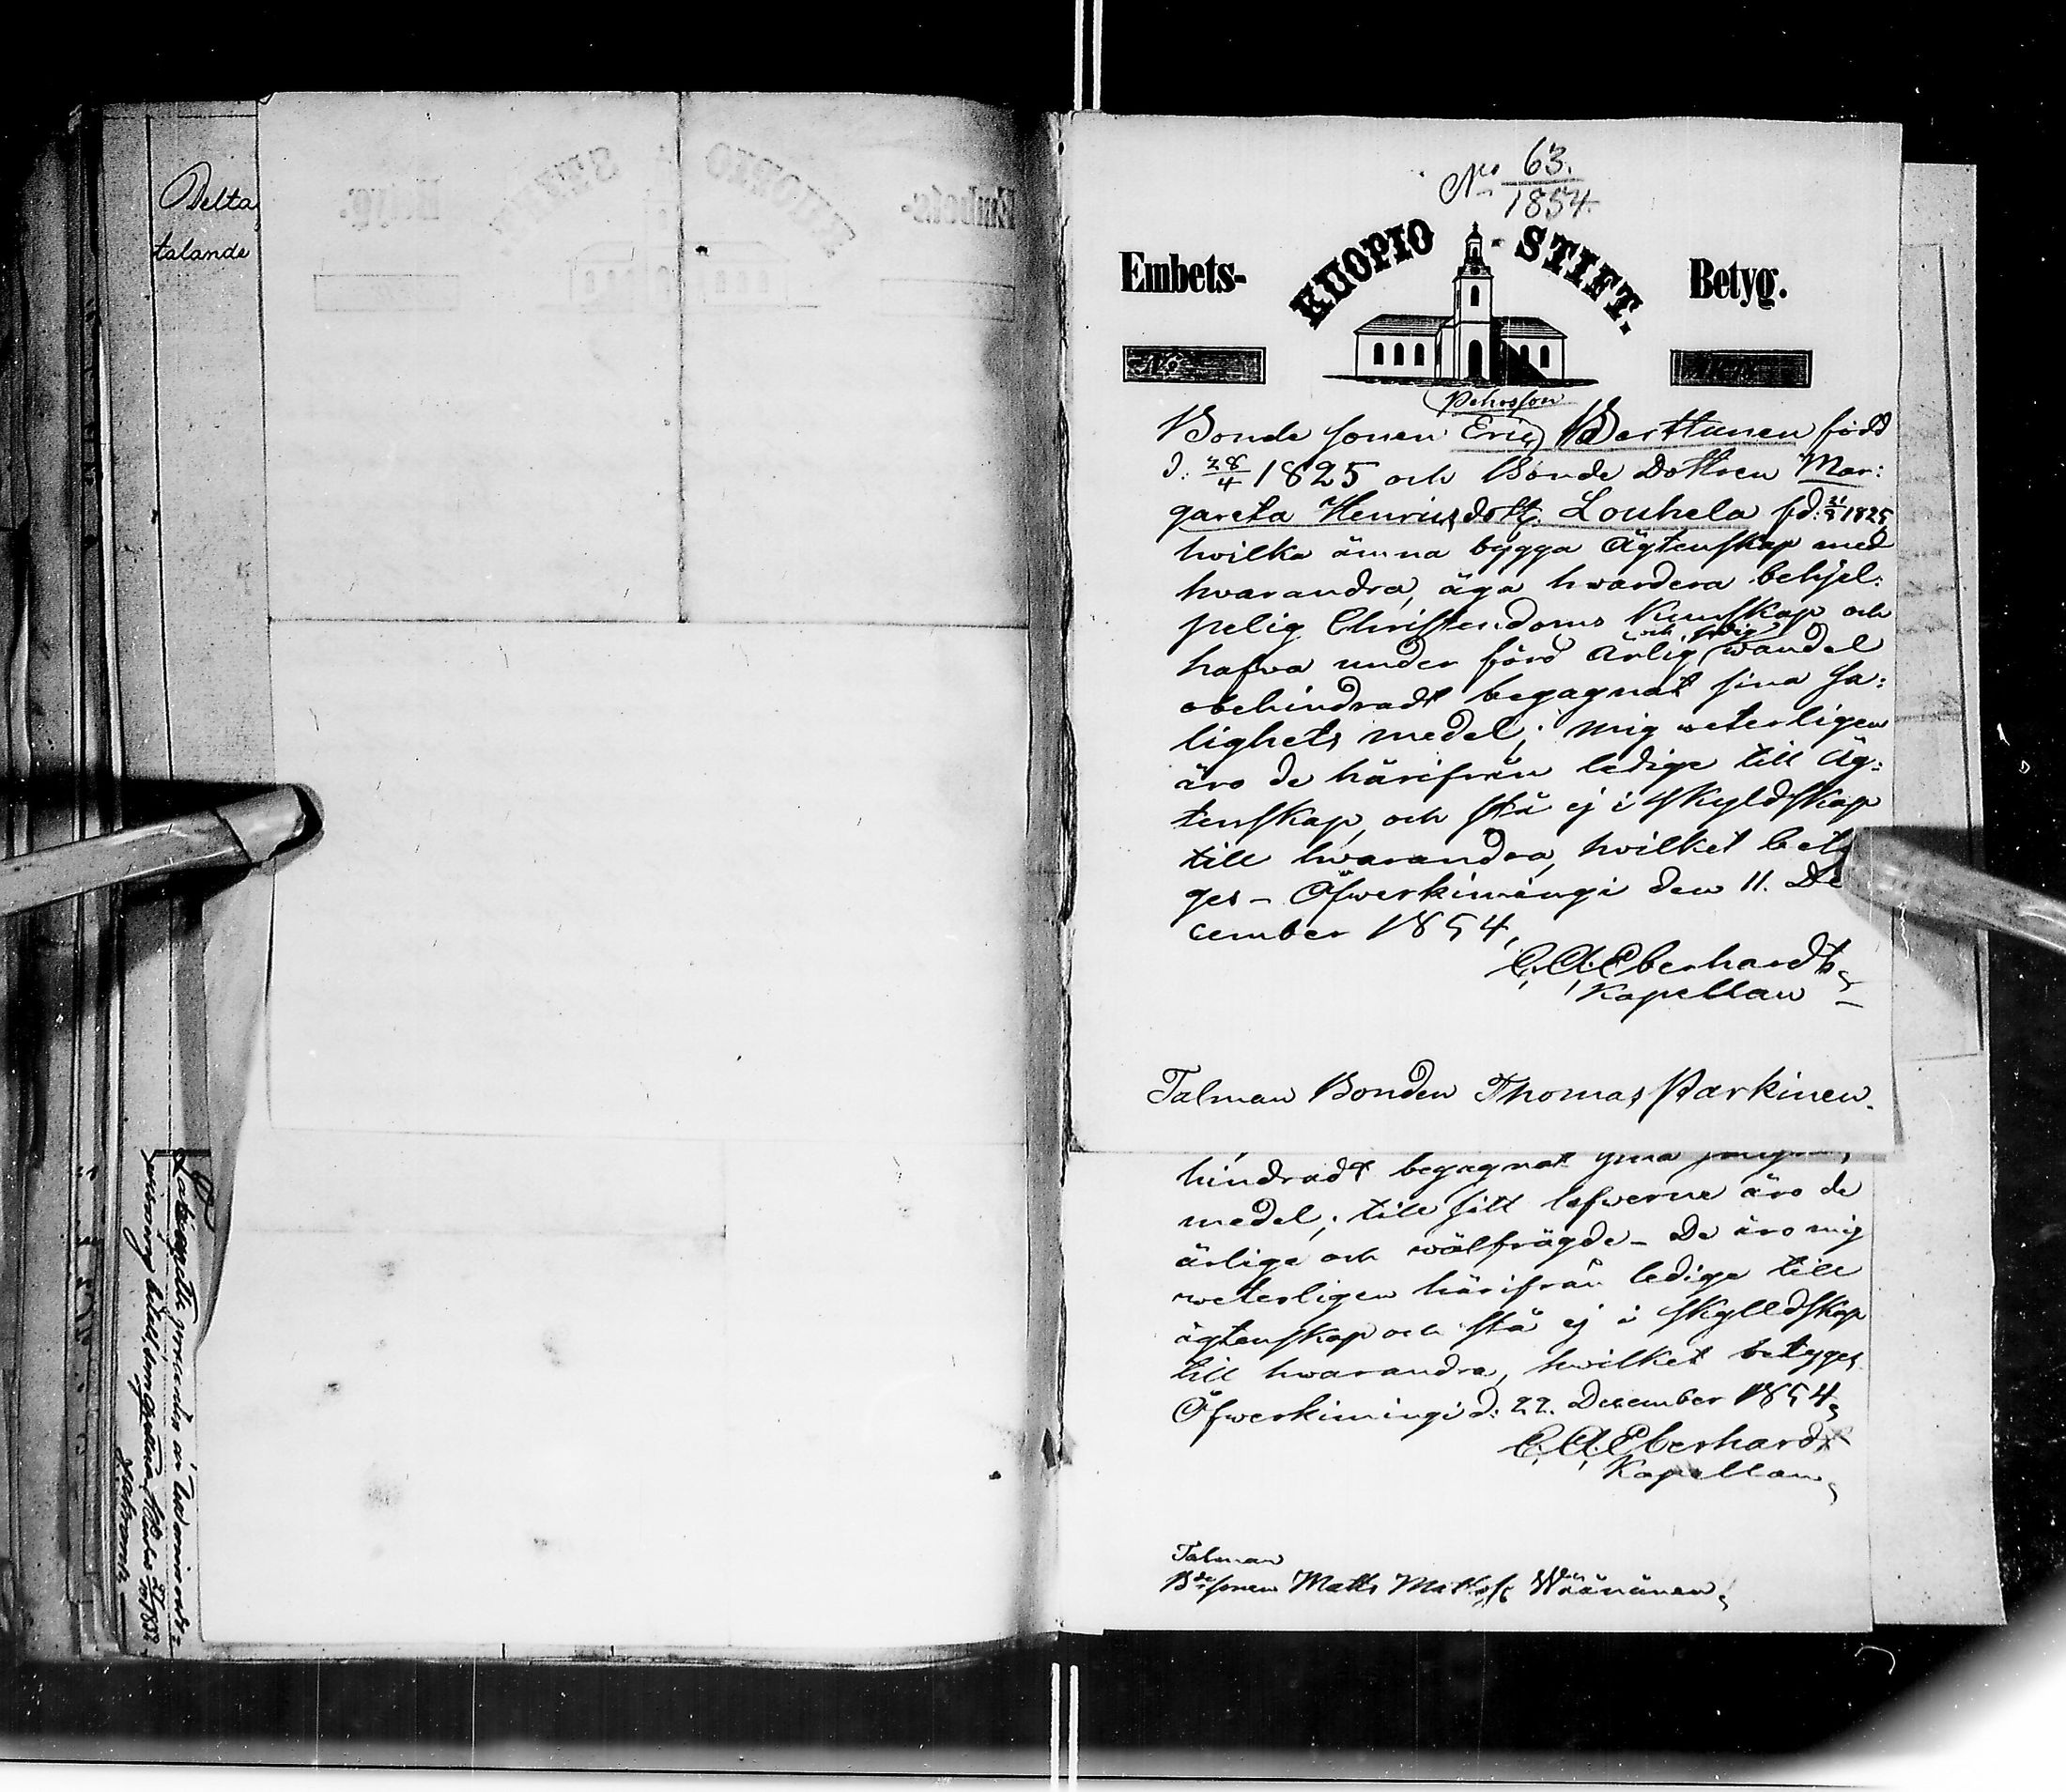 Delta
talande
No 63.
1854.
Embets- KUOPIO STIFT. Betyg.
No
Pehrsson
Bonde sonen Eric Perttunen född
d. 28/4 1825 och Bonde Dottren Mar:
gareta Henricsdotr Louhela fd: 21/8 1825
hvilka ämna bygga Ägtenskap med
hvarandra, äga hwardera behjel:
pelig Christendoms Kunskap och
och sedig
hafva under förd ärlig wandel
obehindradt begagnat sina Sa:
lighets medel; mig veterligen
äro de härifrån ledige till Äg:
tenskap, och stå ej i Skyldskap
till hwarandra, hvilket bety
ges – Öfwerkimingi den 11. De
cember 1854,
C. A. Eberhardt
Kapellan
Talman Bonden Thomas Parkinen.
hindradt begagnat sina
medel; till sitt lefwerne äro de
ärlige och wälfrägde – De äro mig
weterligen härifrån ledige till
ägtenskap och stå ej i Skylldskap
till hwarandra, hwilket betyges
Öfwerkimingi d: 22. December 1854,
C. A. Eberhardt
Kapellan
Talman
Bdesonen Matts Mattss. Wäänänen